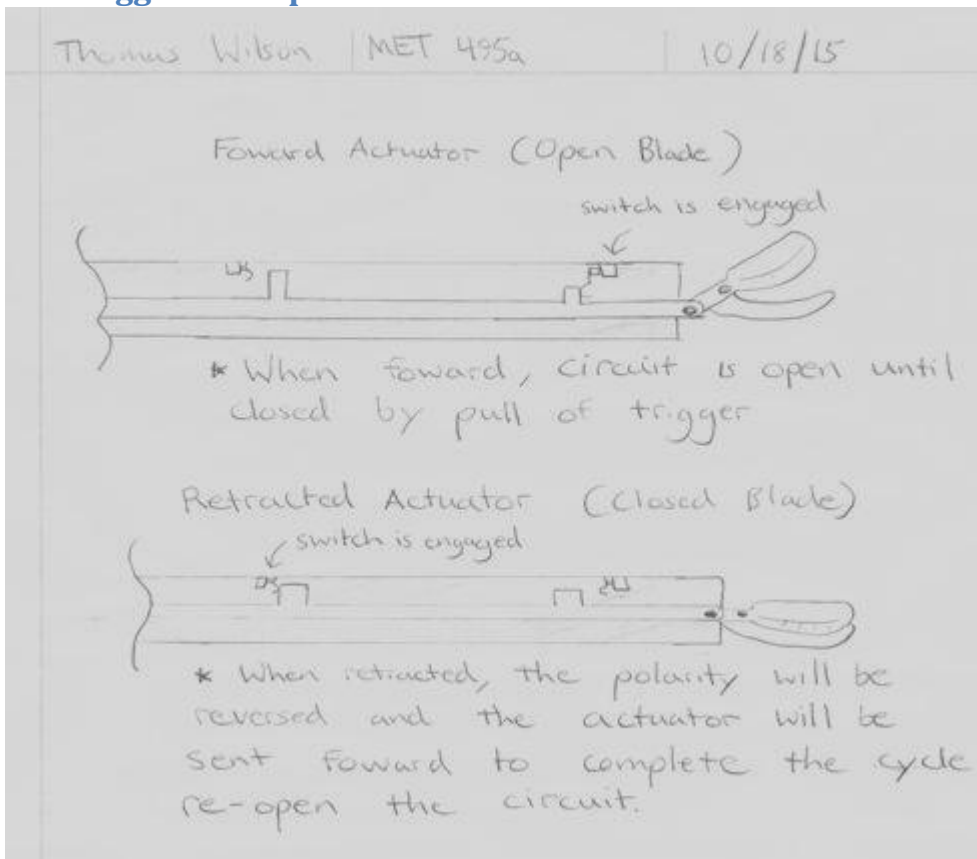 Thomas Wilson MET 495a 10/18/15
Foward Actuator (Open Blade)
switch is engaged
* When foward, circuit is open until
closed by pull of trigger
Retracted Actuator (Closed Blade)
switch is engaged
* When retracted, the polarity will be
reversed and the actuator will be
sent foward to complete the cycle
re-open the circuit.